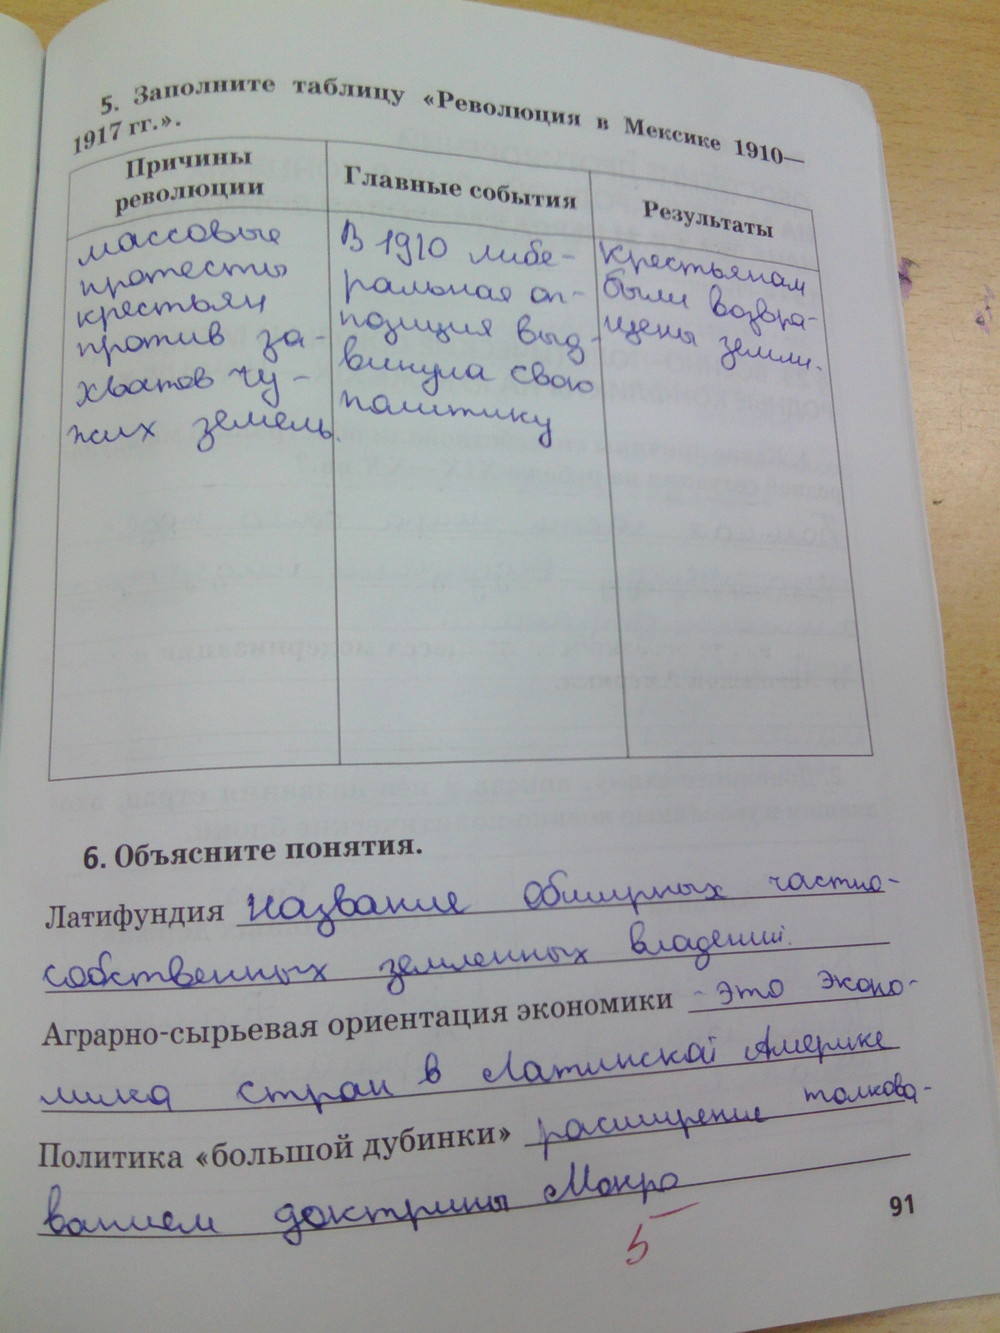 5. Заполните таблицу «Революция в Мексике 1910—
1917 гг.».
Причины
революции
массовые
протесты
крестьян
против за-
хватов чу-
жих земель
Главные события
В 1910 либе-
ральная оп-
позиция выд-
винула свою
политику
Результаты
Крестьянам
были возвра-
щены земли.
6. Объясните понятия.
Латифундия название обширных частно-
собственных земленных владений.
Аграрно-сырьевая ориентация экономики - это эконо-
мика стран в Латинской Америке
Политика «большой дубинки» расширение толкова-
ванием доктрины Монро
91
5-